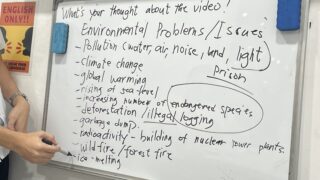 ENGLISH
ONLY!!
What's your thought about the video?
Environmental Problems/Issues
- Pollution (water, air, noise, land, light
prison
- climate change
- global warming
- rising of sea level
- increasing number of endangered species
- deforestation / illegal logging
- garbage dump.
- radioactivity - building of nuclear power plants.
- wild fire / forest fire
- ice-melting